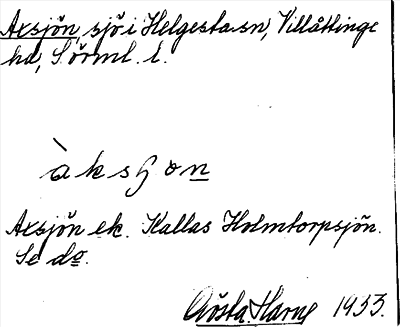 Axsjön, sjö i Helgesta sn, Villåttinge
hd, Sörml. l.
àksȝon
Axsjön ek. Kallas Holmtorpsjön.
Se do.
Gösta Harne 1933.